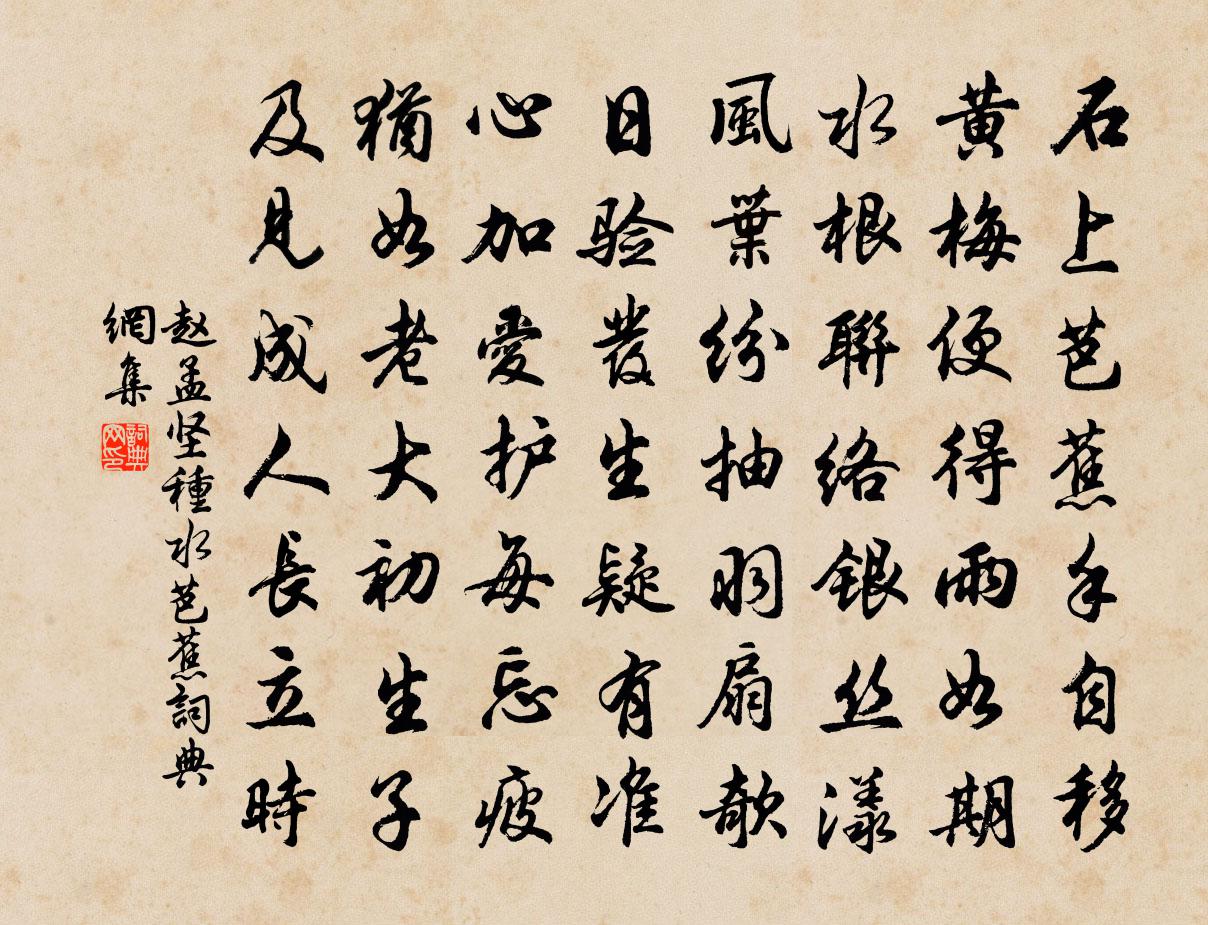 石上芭蕉手自移
黄梅便得雨如期
水根聯絡銀丝漾
風葉紛抽羽扇欹
日验發生疑有准
心加愛护每忘疲
猶如老大初生子
及見成人長立時
赵孟坚種水芭蕉詞典
網集
詞典
网印